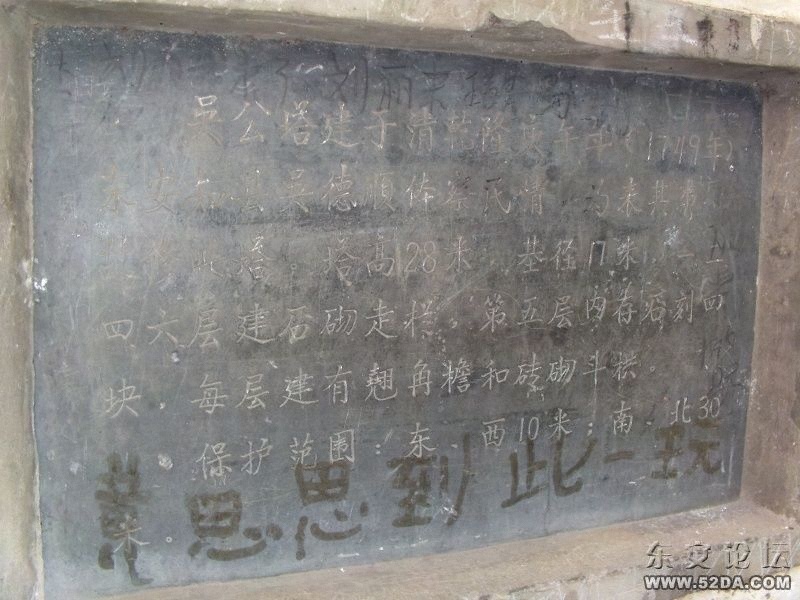 刘丽
吴公塔建于清乾隆庚午年(1749年)
东安知县吴德顺体察民情
修此塔。塔高28米,基径17米,
四六层建层砌走栏,第五层内存容刻四
块,每层建有翘角檐和砖砌斗拱。
保护范围:东、西10米;南、北30
米。
黄思思到此一玩
东安论坛
WWW.52DA.COM